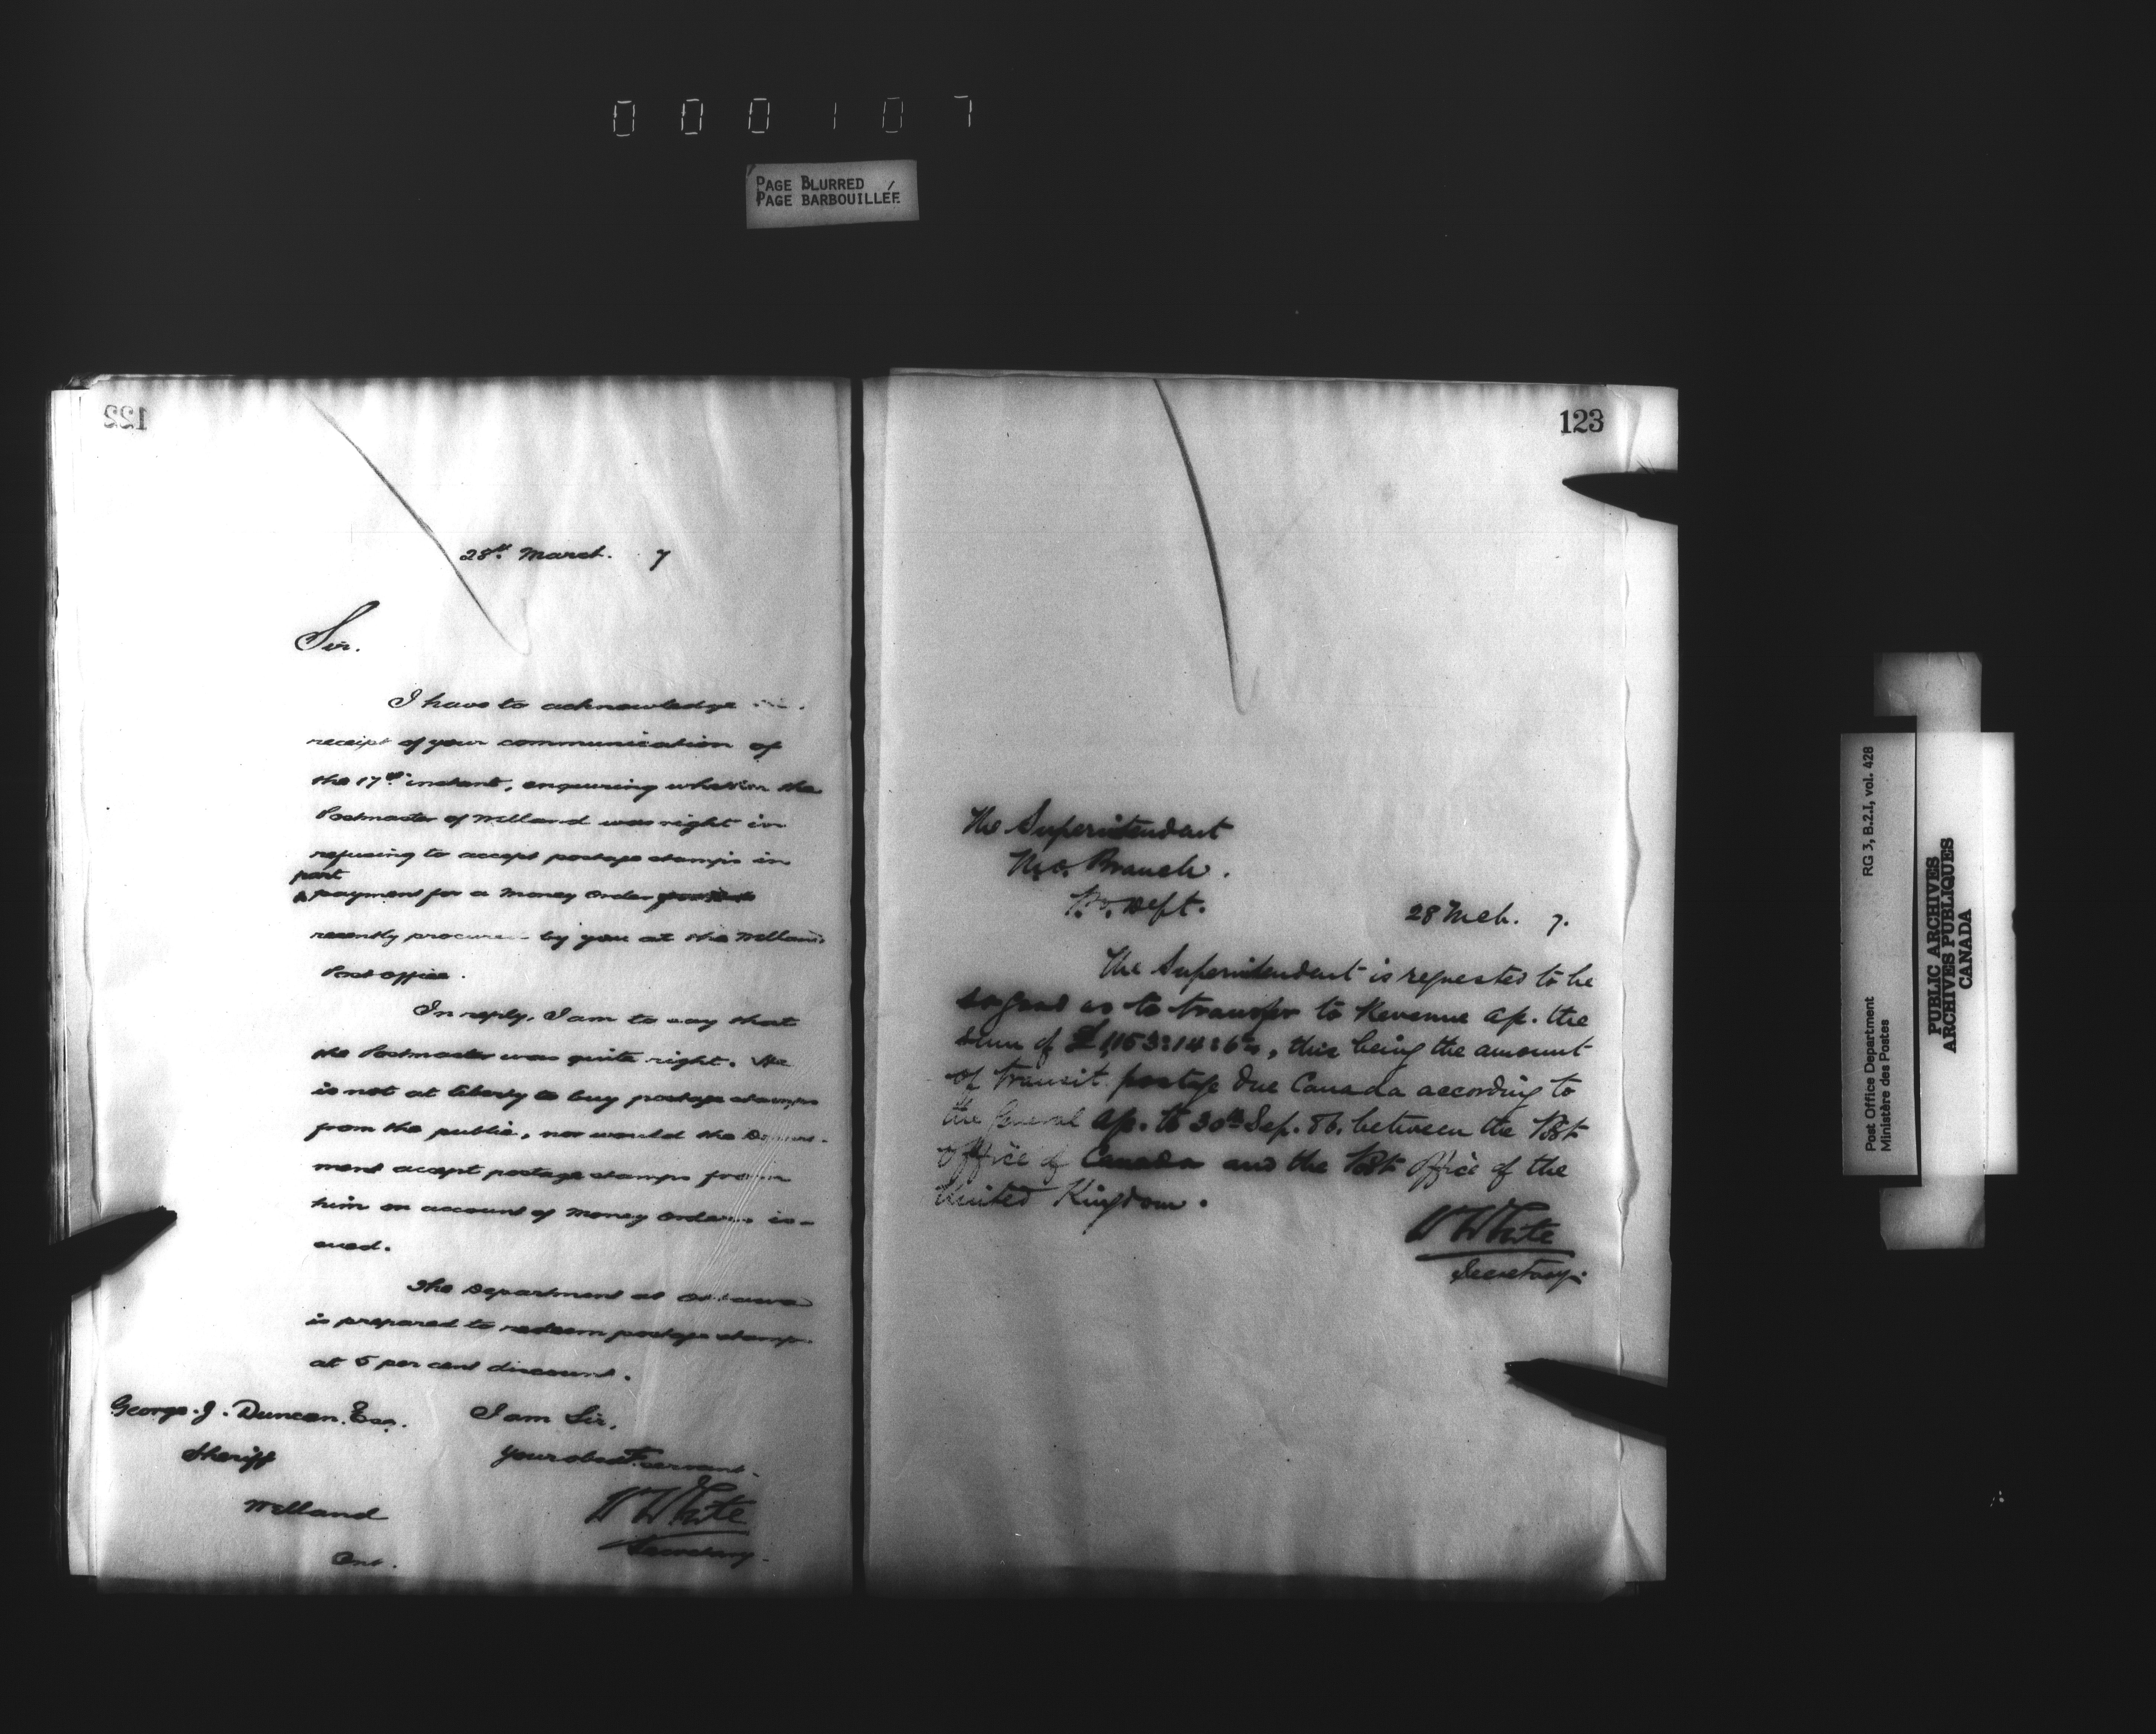 000107
PAGE BLURRED
PAGE BARBOUILLÉE
122
28th March. 7
Sir.
I have to acknowledge
receipt of your communication of
the 17th instant, enquiring whether the
Postmaster of Welland was right in
refusing to accept postage stamps in
part
payment for a Money Order
recently procured by you at the Welland
Post Office.
In reply, I am to say that
the Postmaster was quite right. He
is not at liberty to buy postage stamps
from the public, nor would the Depart-
ment accept postage stamps from
him on account of Money Orders is-
sued.
The Department at Ottawa
is prepared to redeem postage stamps
at 5 per cent discount.
George. J. Duncan. Esq.
Sheriff
Welland
Ont.
I am Sir,
Your obedt. servant.
W White
Secretary.
123
The Superintendent
M.O. Branch.
P.O. Dept.
28 Mch. 7.
The Superintendent is requested to be
so good as to transfer to Revenue a/c. the
sum of £1,153:14:6, this being the amount
of transit postage due Canada according to
the General a/c. to 30th Sep. 86. between the Post
Office of Canada and the Post Office of the
United Kingdom.
W White
Secretary.
Post Office Department
Ministère des Postes
RG 3, B.2.I, vol. 428
PUBLIC ARCHIVES
ARCHIVES PUBLIQUES
CANADA